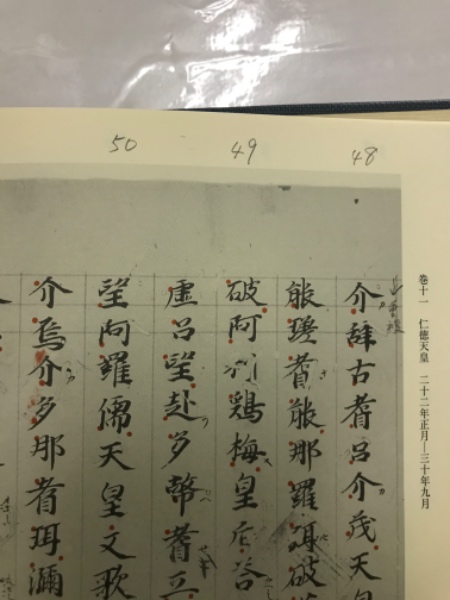 48
49
50
巻十一 仁徳天皇 二十二年正月―三十年九月
介辭古耆呂介茂天皇
能瑳耆能那羅弭破
破阿利鶏梅皇后答
虚呂望赴多幣耆
望阿羅儒天皇文歌
介焉介多那耆珥瀰